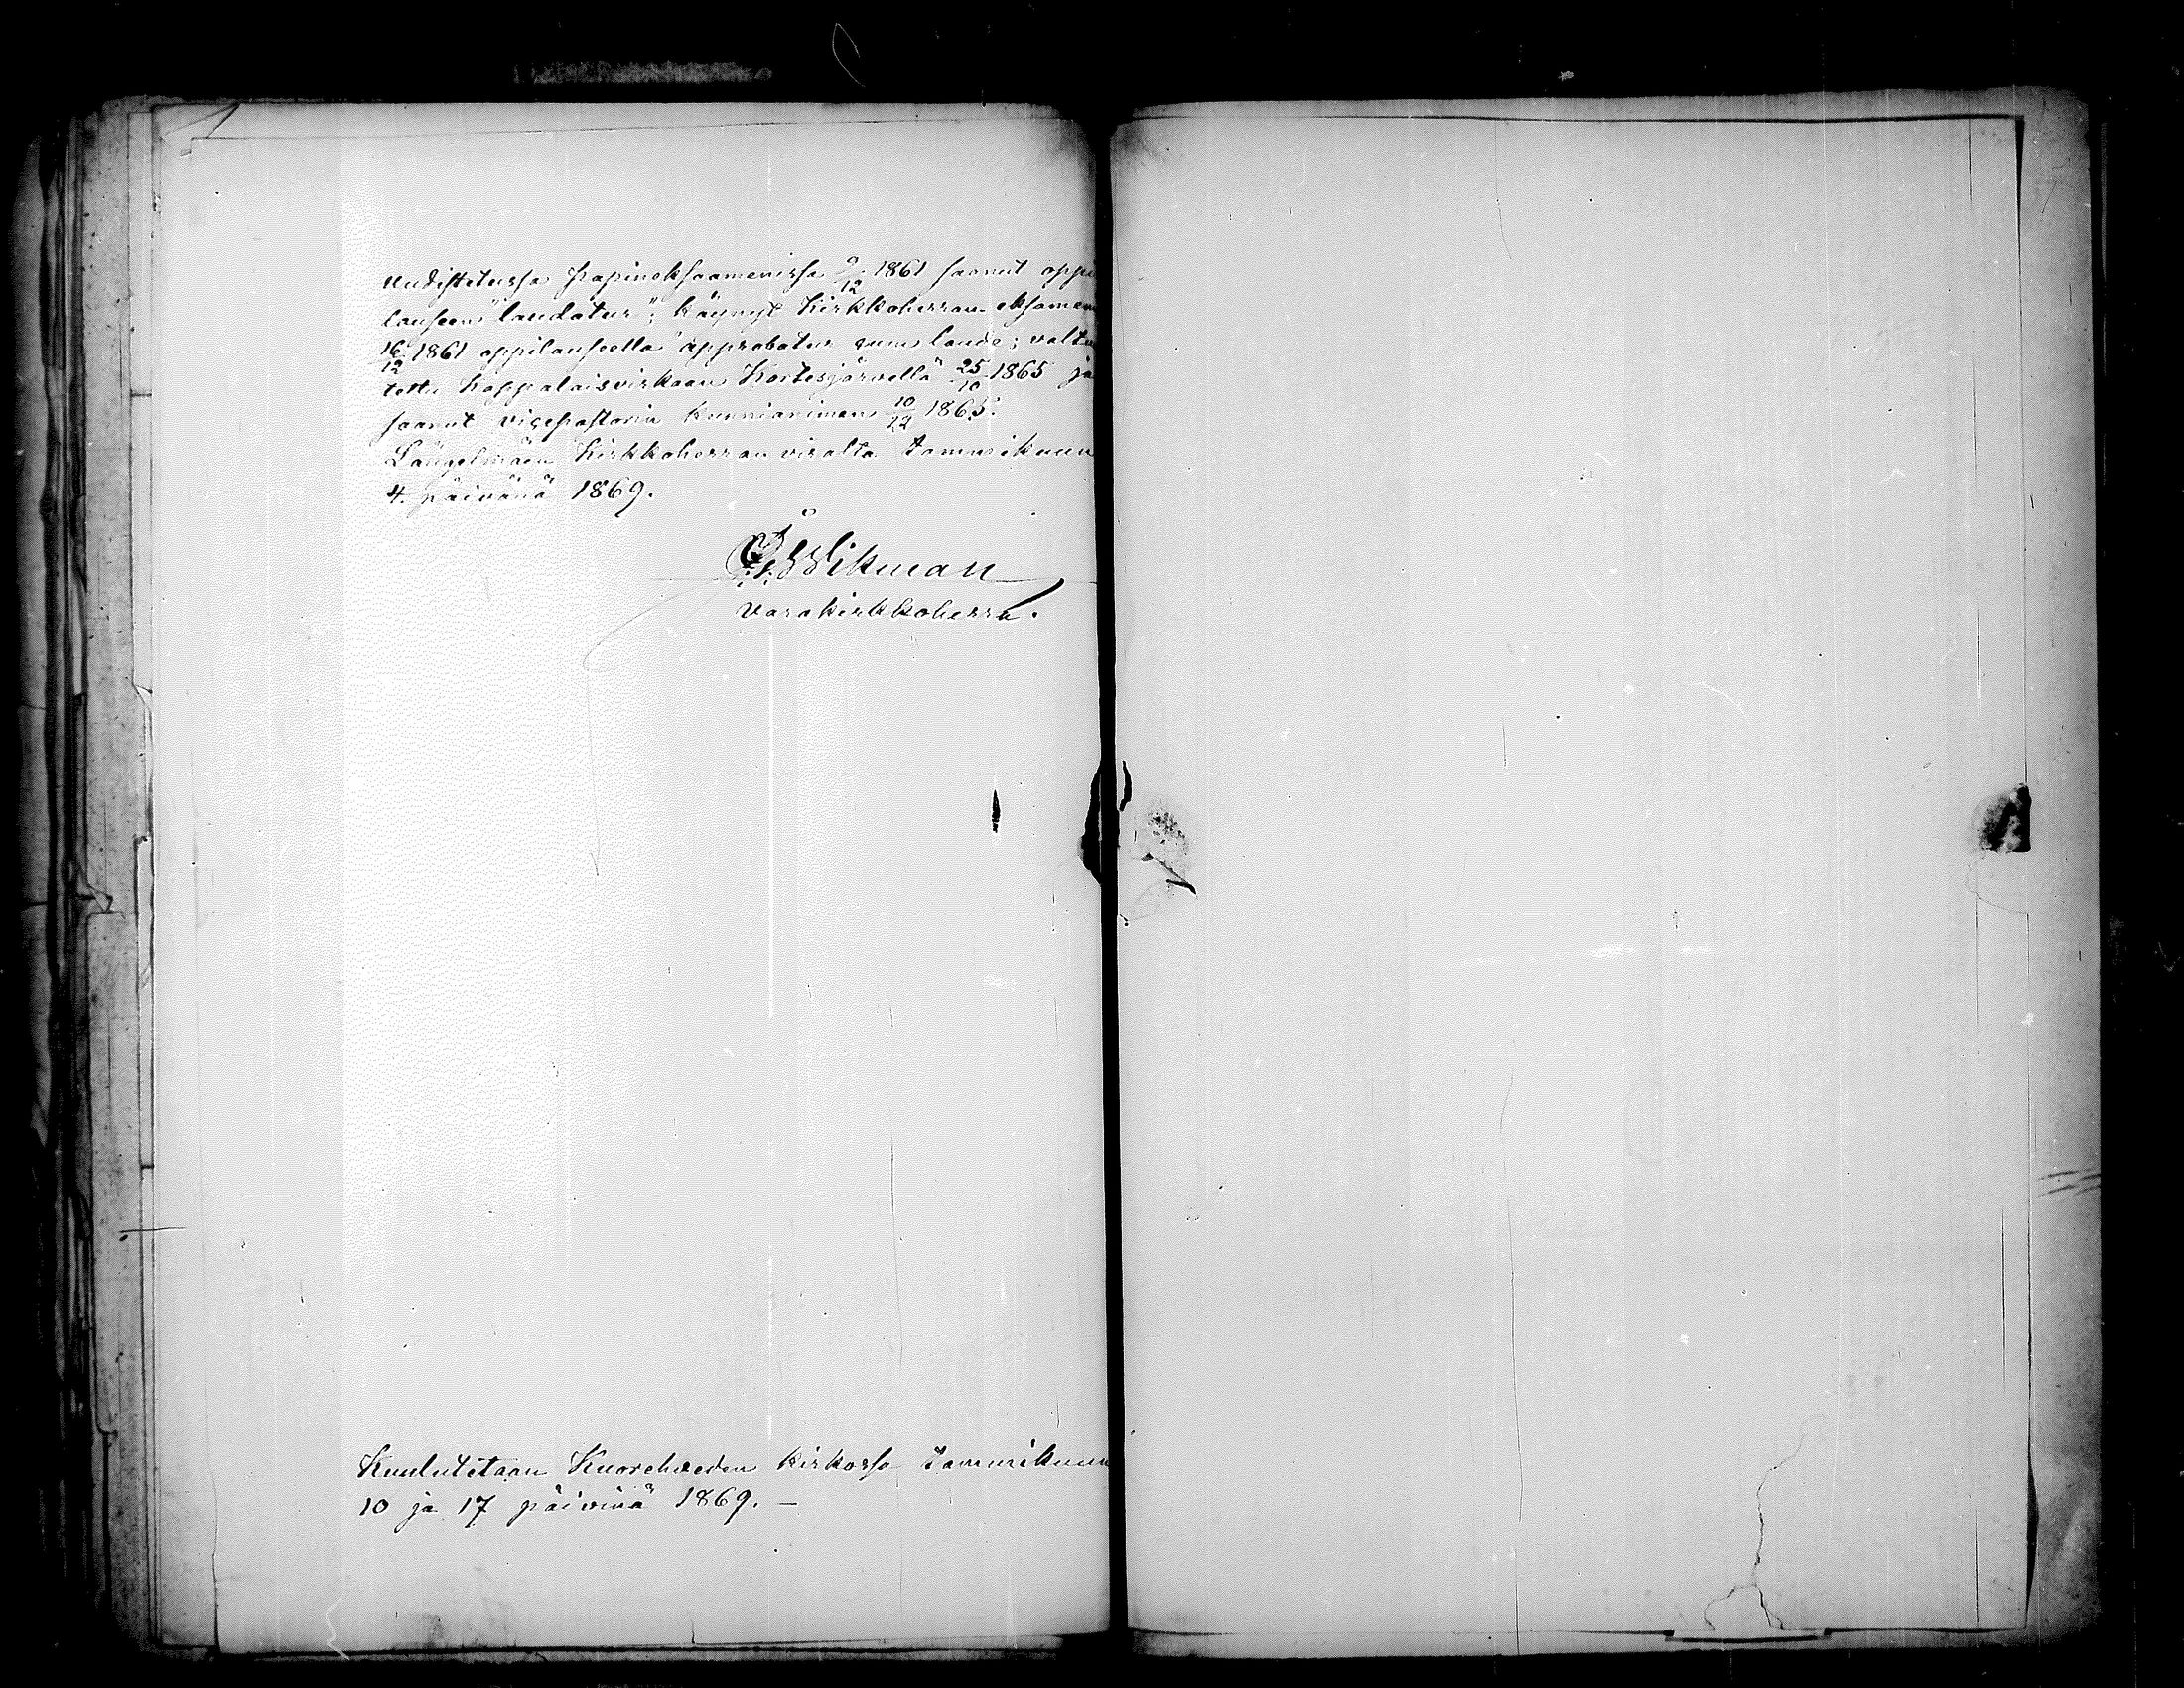 uudistetussa papineksaamenissa 9/12 1861 saanut oppi
lauseen "laudatur"; käynyt Kirkkoherran eksamen
16/12 1861 oppilauseella "approbatur cum laude; valtu
tettu Kappalaisvirkaan Kortesjärvellä 25/10 1865 ja
saanut vicepastorin kunnianimen 10/12 1865.
Längelmäen Kirkkoherran viralta Tammikuun
4. päivänä 1869.
Wikman
Varakirkkoherra.
Kuulutetaan Kuorehveden kirkossa Tammikuun
10 ja 17 päivinä 1869. —